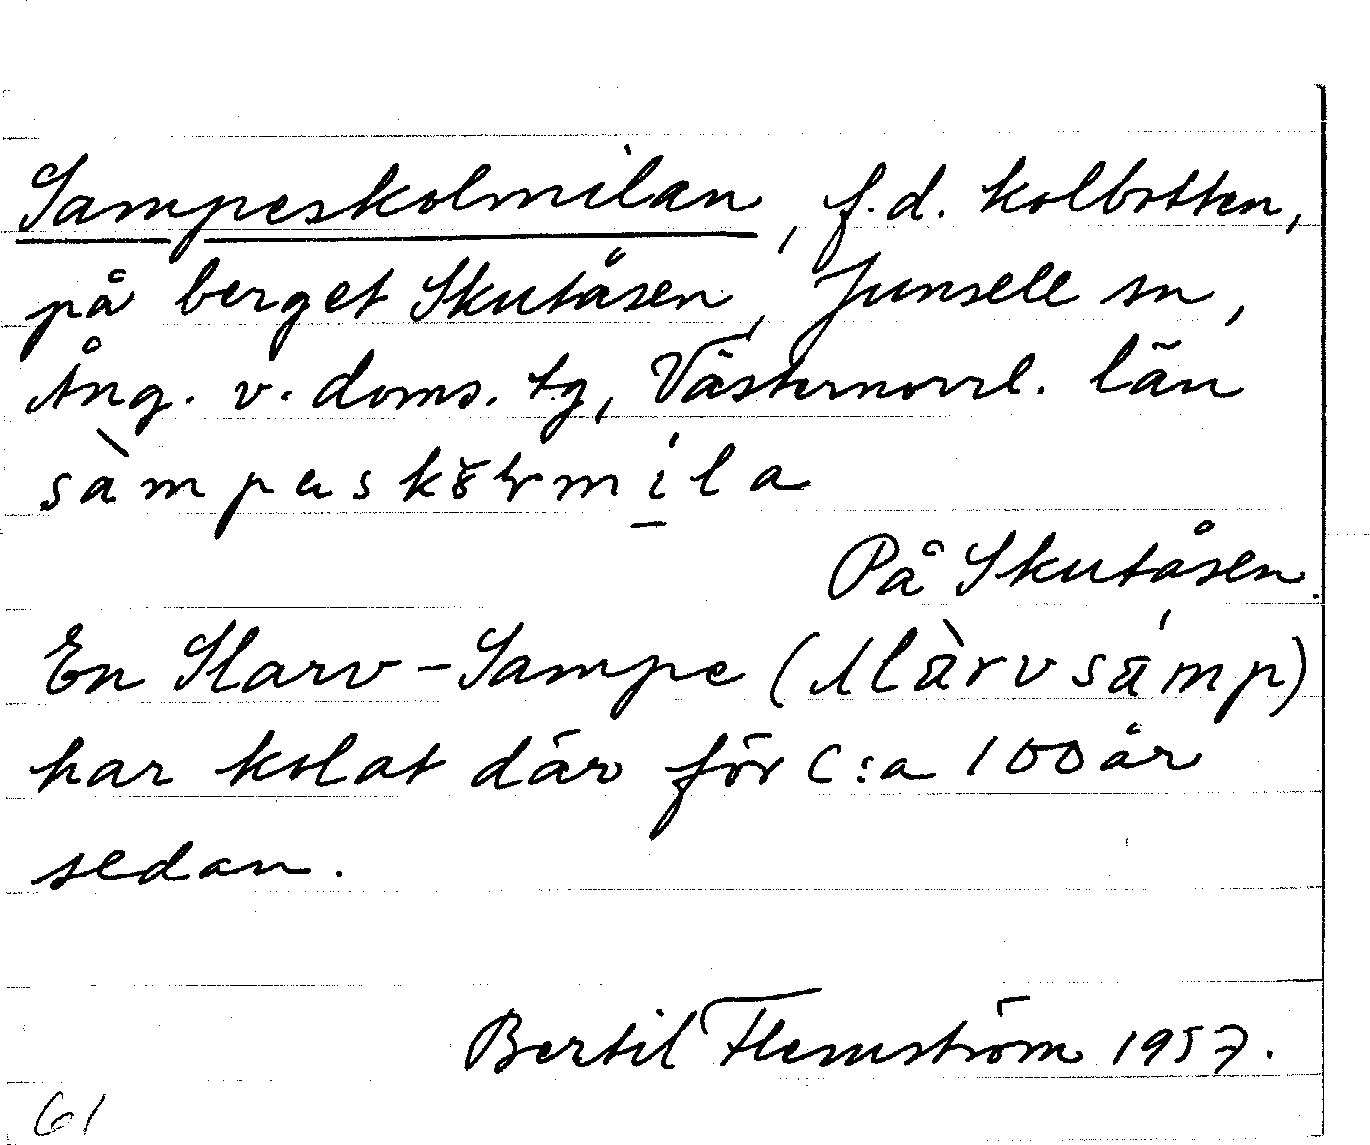 Sampeskolmilan, f.d. kolbotten,
på berget Skutåsen, Junsele sn,
Ång. v. doms. tg, Västernorrl. län
På Skutåsen.
En Slarv-Sampe (slàrvsámp)
har kolat där för c:a 100 år
sedan.
Bertil Flemström 1957.
61